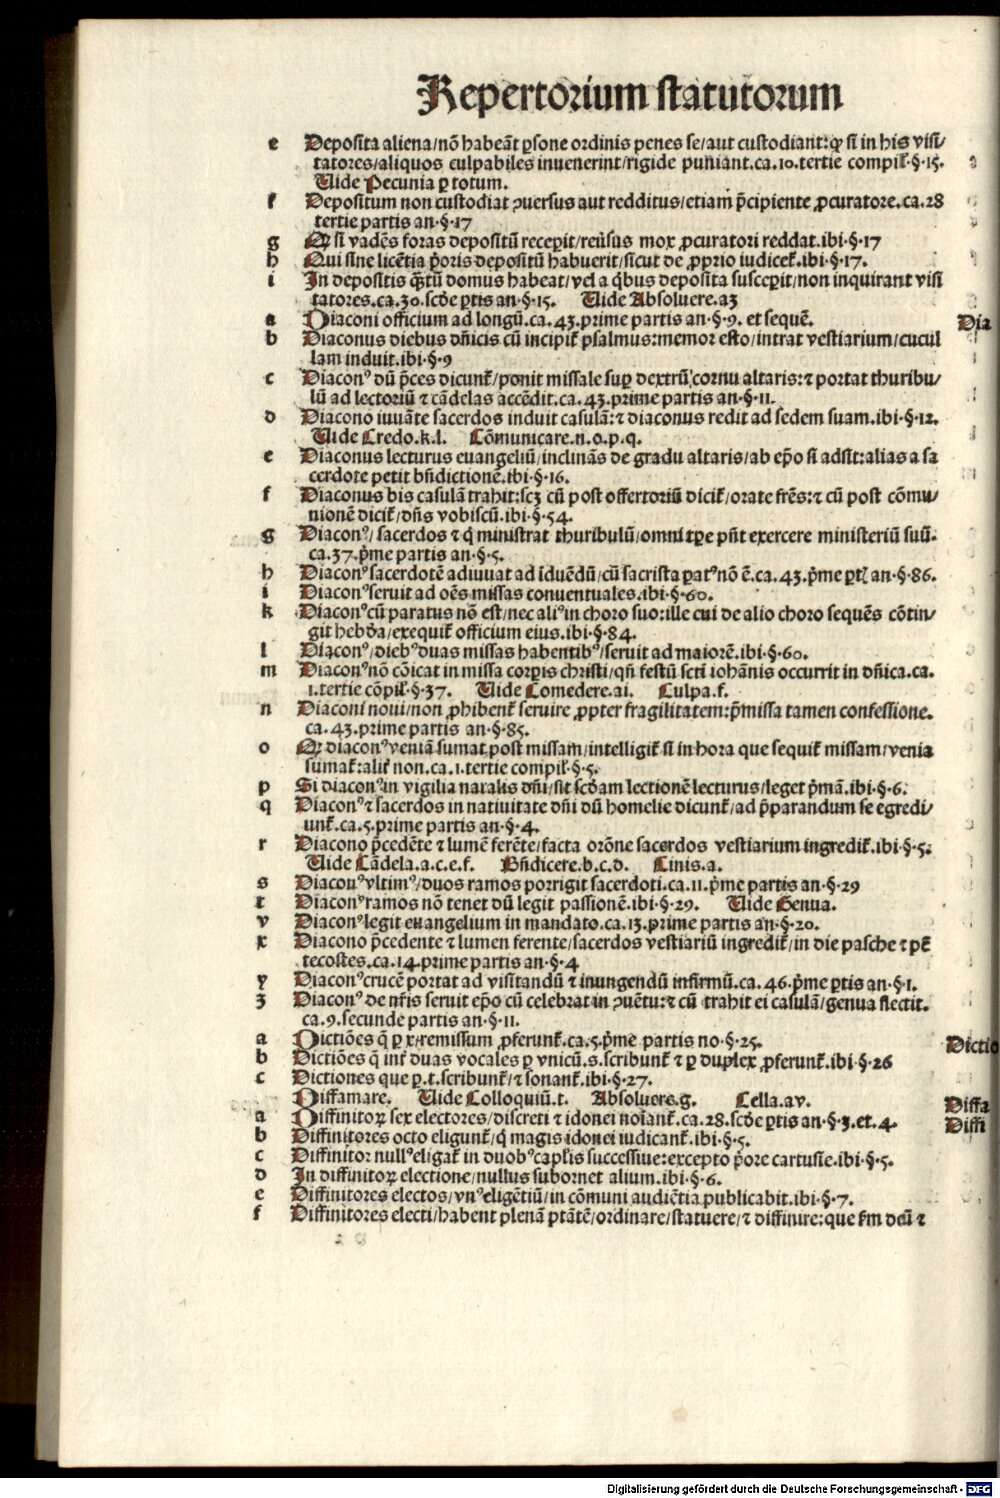 Repertorium statutorum
e Deposita aliena/nō habeāt ꝑsone ordinis penes se/aut custodiant:ꝙ si in his visi/
tatores/aliquos culpabiles inuenerint/rigide puniant.ca.10.tertie compil̕.§.15.
Uide Pecunia ꝑ totum.
f Depositum non custodiat ꝯuersus aut redditus/etiam p̄cipiente ꝓcuratore.ca.28
tertie partis an.§.17
g Qꝛ si vadēs foras depositū receꝑit/reūsus mox ꝓcuratori reddat.ibi.§.17
h Qui sine licētia p̄oris depositū habuerit/sicut de ꝓprio iudicet̕.ibi.§.17.
i In depositis quātū domus habeat/vel a q̄bus deposita susceꝑit/non inquirant visi
tatores.ca.30.scd̄e ꝑtis an.§.15. Uide Absoluere.a3
a Diaconi officium ad longū.ca.43.prime partis an.§.9.et sequē. Dia
b Diaconus diebus dn̄icis cū incipit̕ psalmus:memor esto/intrat vestiarium/cucul
lam induit.ibi.§.9
c Diaconꝰ dū p̄ces dicunt̕/ponit missale suꝑ dextrū cornu altaris:⁊ portat thuribu/
lū ad lectoriū ⁊ cādelas accēdit.ca.43.prime partis an.§.11.
d Diacono iuuāte sacerdos induit casulā:⁊ diaconus redit ad sedem suam.ibi.§.12.
Uide Credo.k.l. Cōmunicare.n.o.p.q.
e Diaconus lecturus euangeliū/inclinās de gradu altaris/ab ep̄o si adsit:alias a sa
cerdote petit bn̄dictionē.ibi.§.16.
f Diaconus bis casulā trahit:scꝫ cū post offertoriū dicit̕/orate frēs:⁊ cū post cōmu/
nionē dicit̕/dn̄s vobiscū.ibi.§.54.
g Diaconꝰ/sacerdos ⁊ q̄ ministrat thuribulū/omni tꝑe pn̄t exercere ministeriū suū.
ca.37.p̄me partis an.§.5.
h Diaconꝰ sacerdotē adiuuat ad īduēdū/cū sacrista ꝑatꝰ nō ē.ca.43.p̄me ꝑtꝭ an.§.86.
i Diaconꝰ seruit ad oēs missas conuentuales.ibi.§.60.
k Diaconꝰ cū paratus nō est/nec aliꝰ in choro suo:ille cui de alio choro sequēs cōtin/
git hebd̄a/exequit̕ officium eius.ibi.§.84.
l Diaconꝰ/diebꝰ duas missas habentibꝰ/seruit ad maiorē.ibi.§.60.
m Diaconꝰ nō cōicat in missa corꝑis christi/qn̄ festū scti iohānis occurrit in dn̄ica.ca.
1.tertie cōpil̕.§.37. Uide Comedere.ai. Culpa.f.
n Diaconi noui/non ꝓhibent̕ seruire ꝓpter fragilitatem:p̄missa tamen confessione.
ca.43.prime partis an.§.85.
o Qꝛ diaconꝰ veniā sumat post missam/intelligit̕ si in hora que sequit̕ missam/venia
sumat̕:alit̕ non.ca.1.tertie compil̕.§.5.
p Si diaconꝰ in vigilia natalis dn̄i/sit scd̄am lectionē lecturus/leget p̄mā.ibi.§.6.
q Diaconꝰ ⁊ sacerdos in natiuitate dn̄i dū homelie dicunt̕/ad p̄parandum se egredi/
unt̕.ca.5.prime partis an.§.4.
r Diacono p̄cedēte ⁊ lumē ferēte/facta orōne sacerdos vestiarium ingredit̕.ibi.§.5.
Uide Cādela.a.c.e.f. Bn̄dicere.b.c.d. Cinis.a.
s Diaconꝰ vltimꝰ/duos ramos porrigit sacerdoti.ca.11.p̄me partis an.§.29
t Diaconꝰ ramos nō tenet dū legit passionē.ibi.§.29. Uide Genua.
v Diaconꝰ legit euangelium in mandato.ca.13.prime partis an.§.20.
x Diacono p̄cedente ⁊ lumen ferente/sacerdos vestiariū ingredit̕/in die pasche ⁊ pē
tecostes.ca.14.prime partis an.§.4
y Diaconꝰ crucē portat ad visitādū ⁊ inungendū infirmū.ca.46.p̄me ꝑtis an.§.1.
z Diaconꝰ de nr̄is seruit ep̄o cū celebrat in ꝯuētu:⁊ cū trahit ei casulā/genua flectit.
ca.9.secunde partis an.§.11.
a Dictiōes q̄ ꝑ x/remissum ꝓferunt̕.ca.5.p̄me partis no.§.25. Dictio
b Dictiōes q̄ int̕ duas vocales ꝑ vnicū.s.scribunt̕ ⁊ ꝑ duplex ꝓferunt̕.ibi.§.26
c Dictiones que ꝑ.t.scribunt̕/⁊ sonant̕.ibi.§.27.
Diffamare. Uide Colloquiū.t. Absoluere.g. Cella.av. Diffa
a Diffinitoꝝ sex electores/discreti ⁊ idonei noīant̕.ca.28.scd̄e ꝑtis an.§.3.et.4. Diffi
b Diffinitores octo eligunt̕/q̄ magis idonei iudicant̕.ibi.§.5.
c Diffinitor nullꝰ eligat̕ in duobꝰ capl̄is successiue:excepto p̄ore cartusie.ibi.§.5.
d In diffinitoꝝ electione/nullus subornet alium.ibi.§.6.
e Diffinitores electos/vnꝰ eligētiū/in cōmuni audiētia publicabit.ibi.§.7.
f Diffinitores electi/habent plenā ptātē/ordinare/statuere/⁊ diffinire:que s̄m deū ⁊
Digitalisierung gefördert durch die Deutsche Forschungsgemeinschaft - DFG